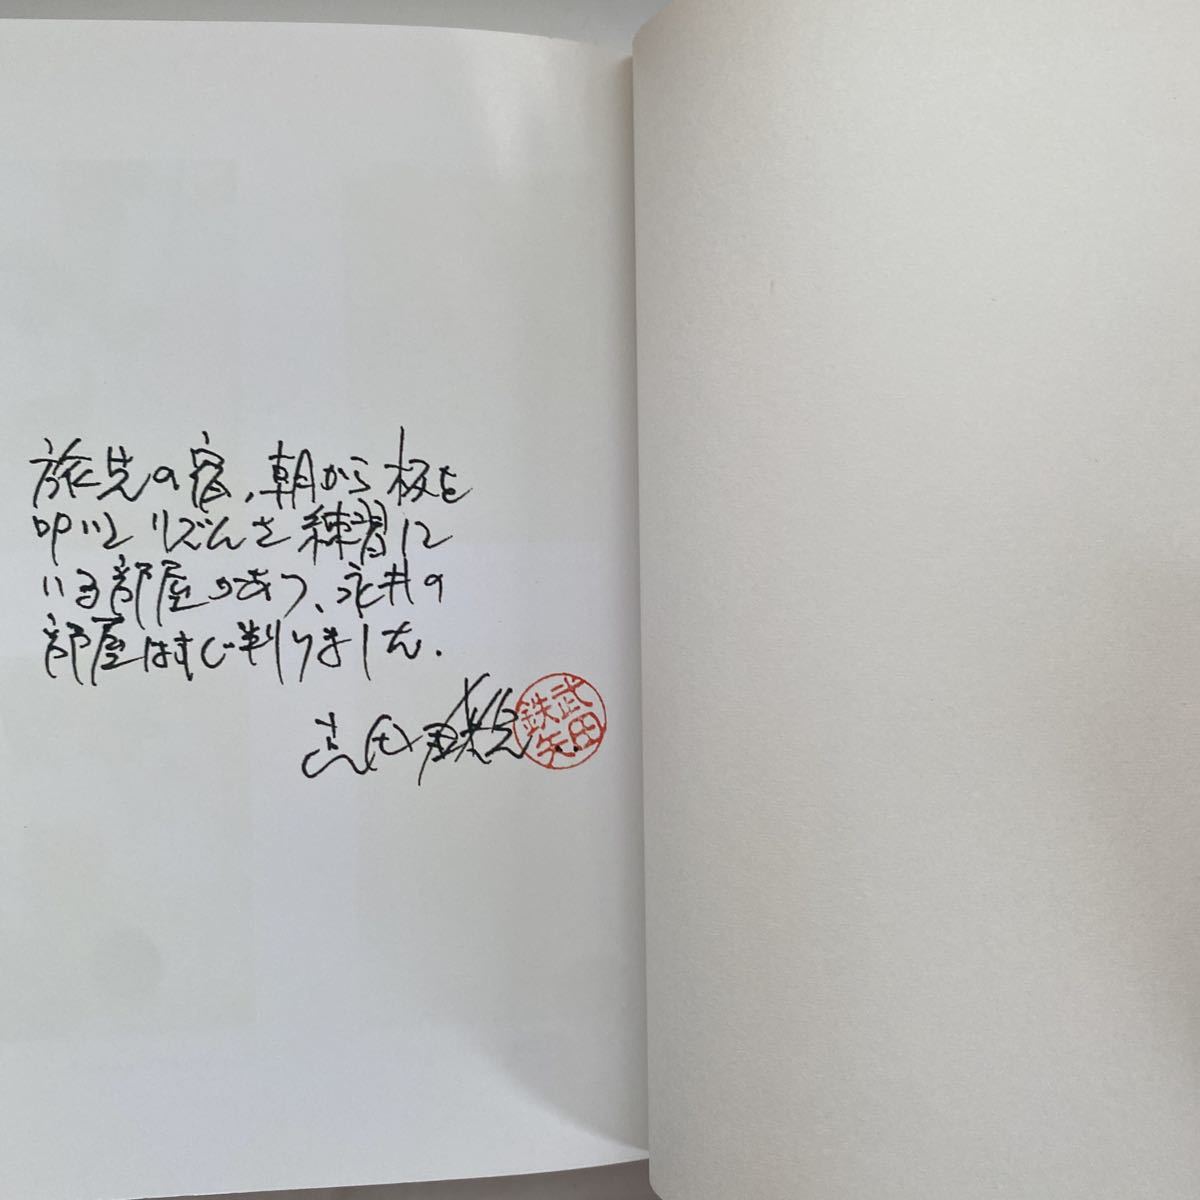 旅先の宿、朝から板を
叩いてリズムを練習して
いる部屋があって、永井の
部屋はすぐ判りました.
武田
鉄矢